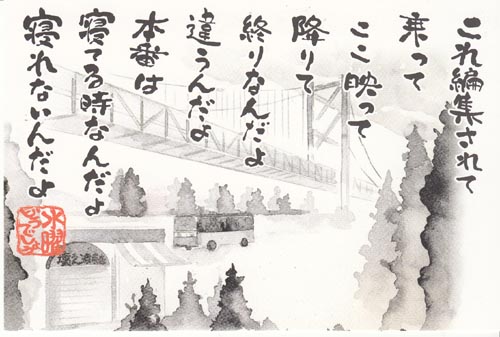 これ編集されて
乗って
ここ映って
降りて
終りなんだよ
違うんだよ
本番は
寝てる時なんだよ
寝れないんだよ
水曜
どうでしょう